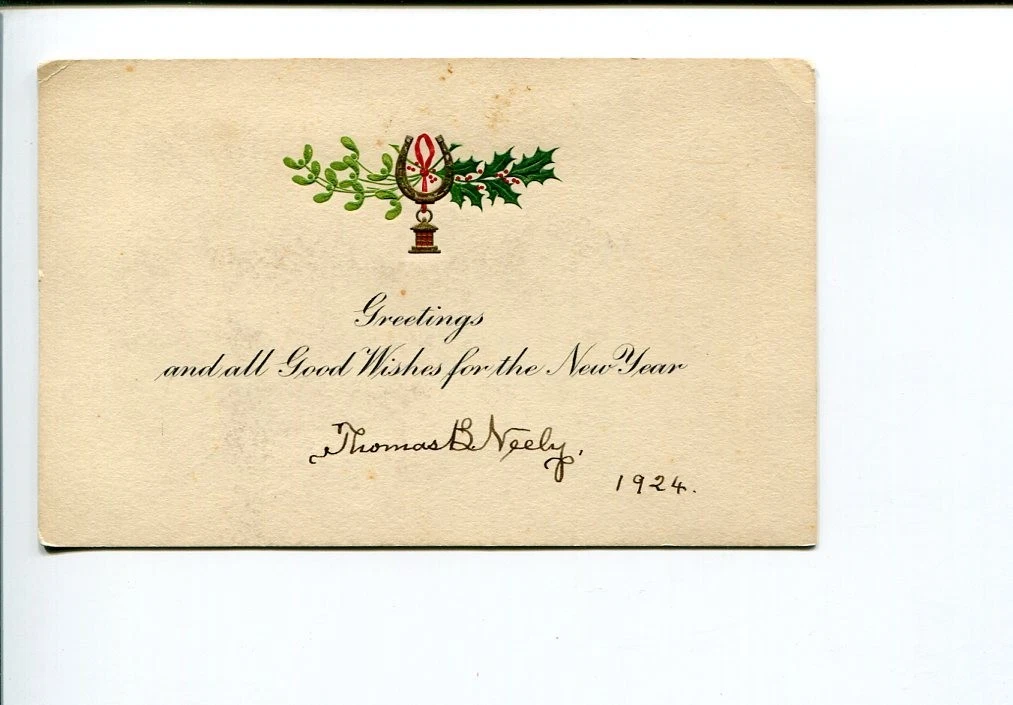 Greetings
and all Good Wishes for the New Year
Thomas B. Neely,
1924.